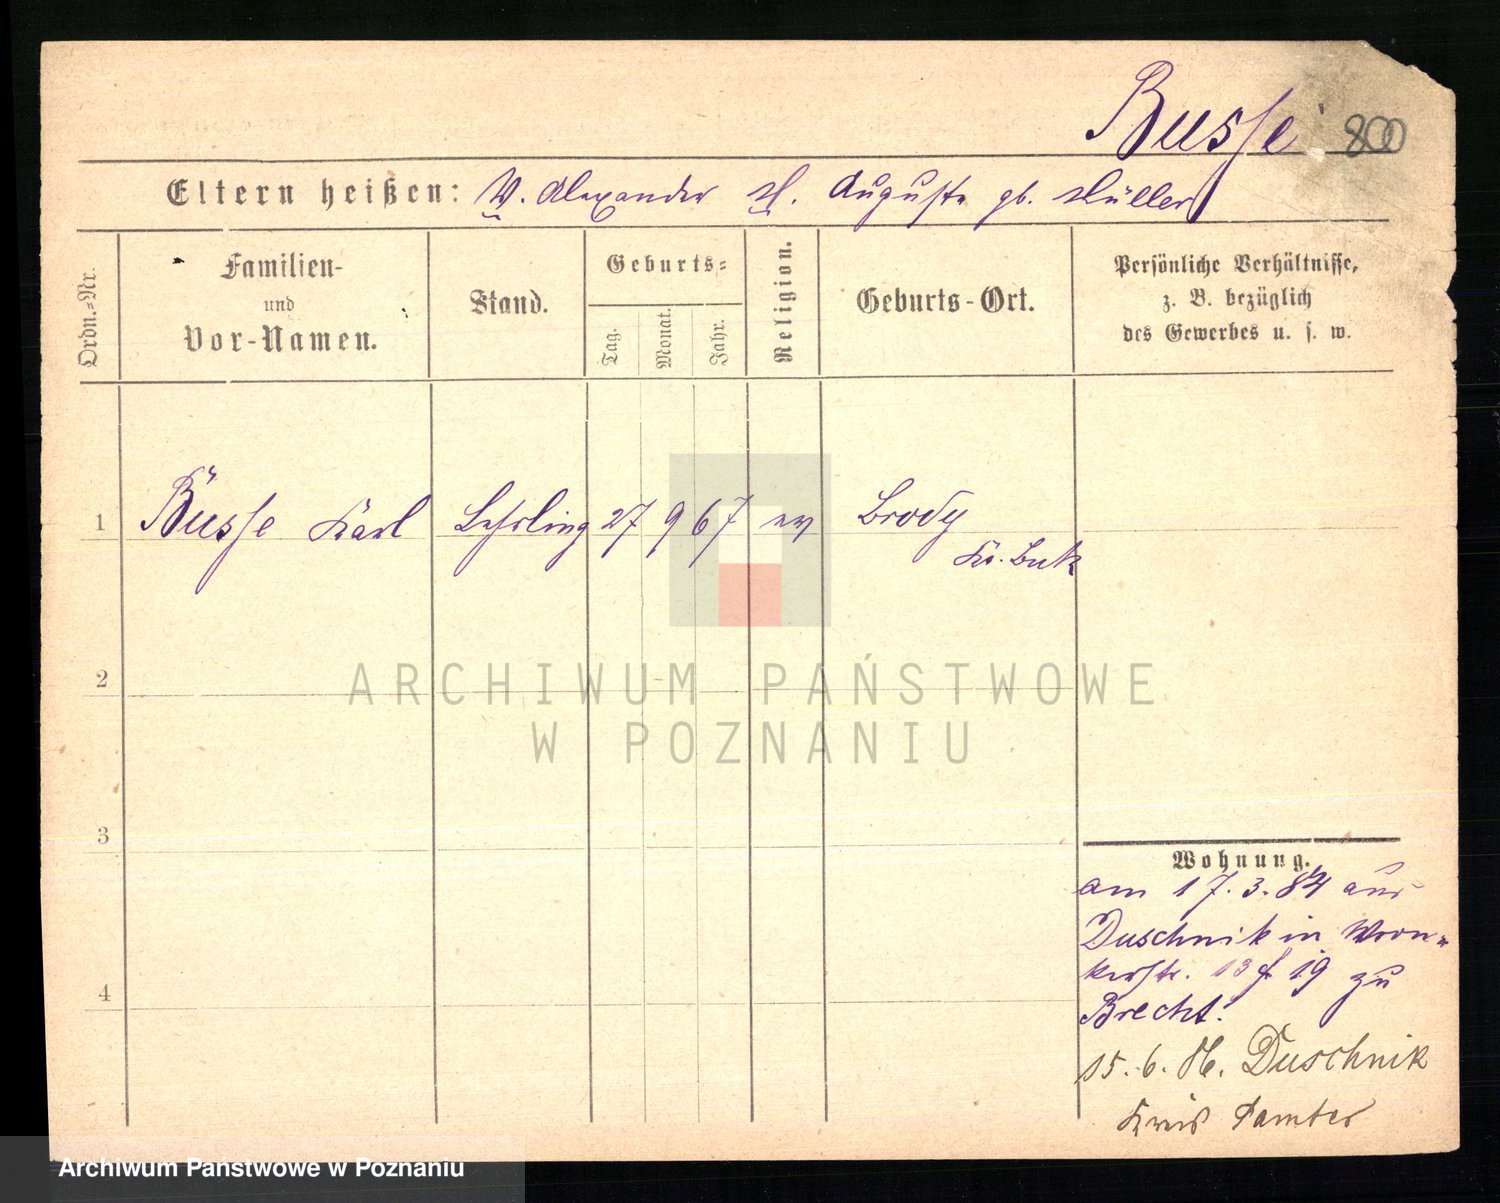 Busse 800
Eltern heißen: V. Alexander M. Auguste gb. Müller
Ordn.-Nr.
Familien-
und
Vor-Namen.
Stand.
Geburts-
Tag.
Monat.
Jahr.
Religion.
Geburts-Ort.
Persönliche Verhältnisse,
z. B. bezüglich
des Gewerbes u. s. w.
1 Busse Karl Lehrling 27 9 67 ev Brody
Kr. Buk
2
3
4
Wohnung.
am 17.3.84 aus
Duschnik in Wron-
kerstr. 19 zu
Brecht.
15.6. Duschnik
Kreis Samter
ARCHIWUM PAŃSTWOWE
W POZNANIU
Archiwum Państwowe w Poznaniu